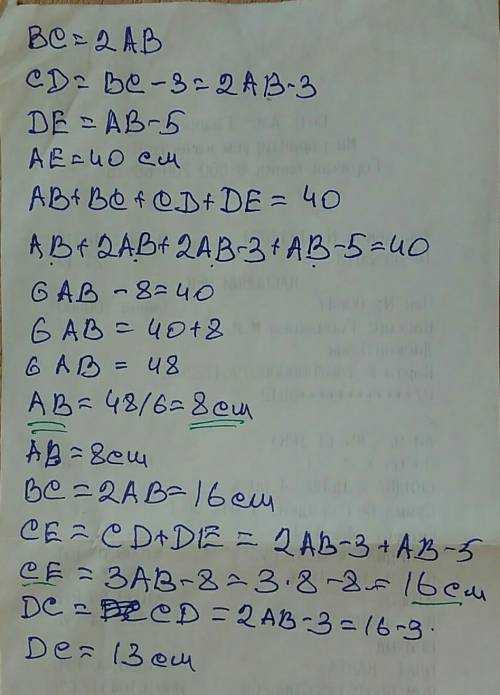 BC = 2AB
CD = BC - 3 = 2AB - 3
DE = AB - 5
AE = 40 см
AB + BC + CD + DE = 40
AB + 2AB + 2AB - 3 + AB - 5 = 40
6AB - 8 = 40
6AB = 40 + 8
6AB = 48
AB = 48/6 = 8см
AB = 8см
BC = 2AB = 16см
CE = CD + DE = 2AB - 3 + AB - 5
CE = 3AB - 8 = 3·8 - 8 = 16см
DC = CD = 2AB - 3 = 16 - 3.
DC = 13см